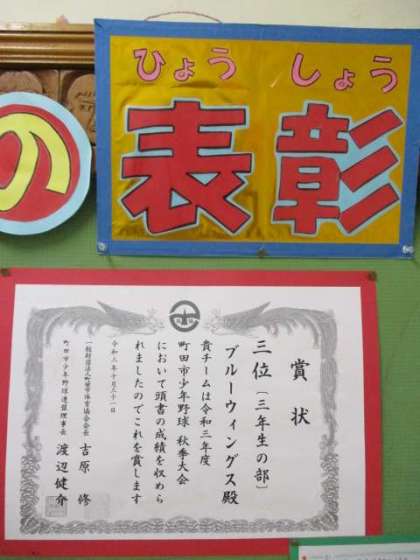 の
ひょう しょう
表彰
賞状
三位〔三年生の部〕
ブルーウィングス殿
貴チームは令和三年度
町田市少年野球 秋季大会
において頭書の成績を収めら
れましたのでこれを賞します
令和三年十月三十一日
一般財団法人町田市体育協会会長
吉原 修
町田市少年野球連盟理事長
渡辺健介